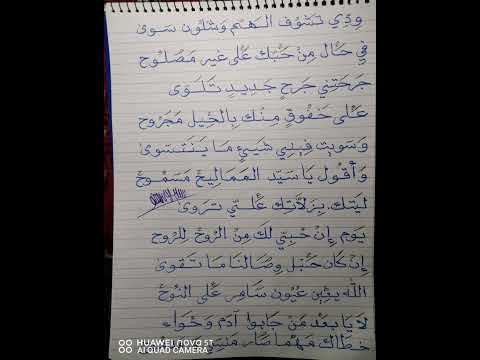 وِدِّي تشُوف الهَم وَشلُون سَوى
فِي حَال مِن حُبّك عَلى غير مَصْلُوح
جَرحَتِني جَرحٍ جَدِيدٍ تَلَوى
عَلى حقُوقٍ مِنك بِالحِيل مَجرُوح
وَسَويت فِيني شَيءٍ مَا يَنتسوى
وَأقول يَا سَيد المَمَالِيح مَسمُوح
ليتك بِزَلاتك عَلَيّ تروى
يَوم إن حُبّي لَك مِن الرُوحْ لِلرُوح
إن كَان حَبْل وِصَالنا مَا تقوى
الله يعِين عيُون سَاهِر عَلى النُوحْ
لا يَا بعد مَن جَابوا آدم وَحَواء
خطاك مَهما صَار
HUAWEI nova 5T
AI QUAD CAMERA